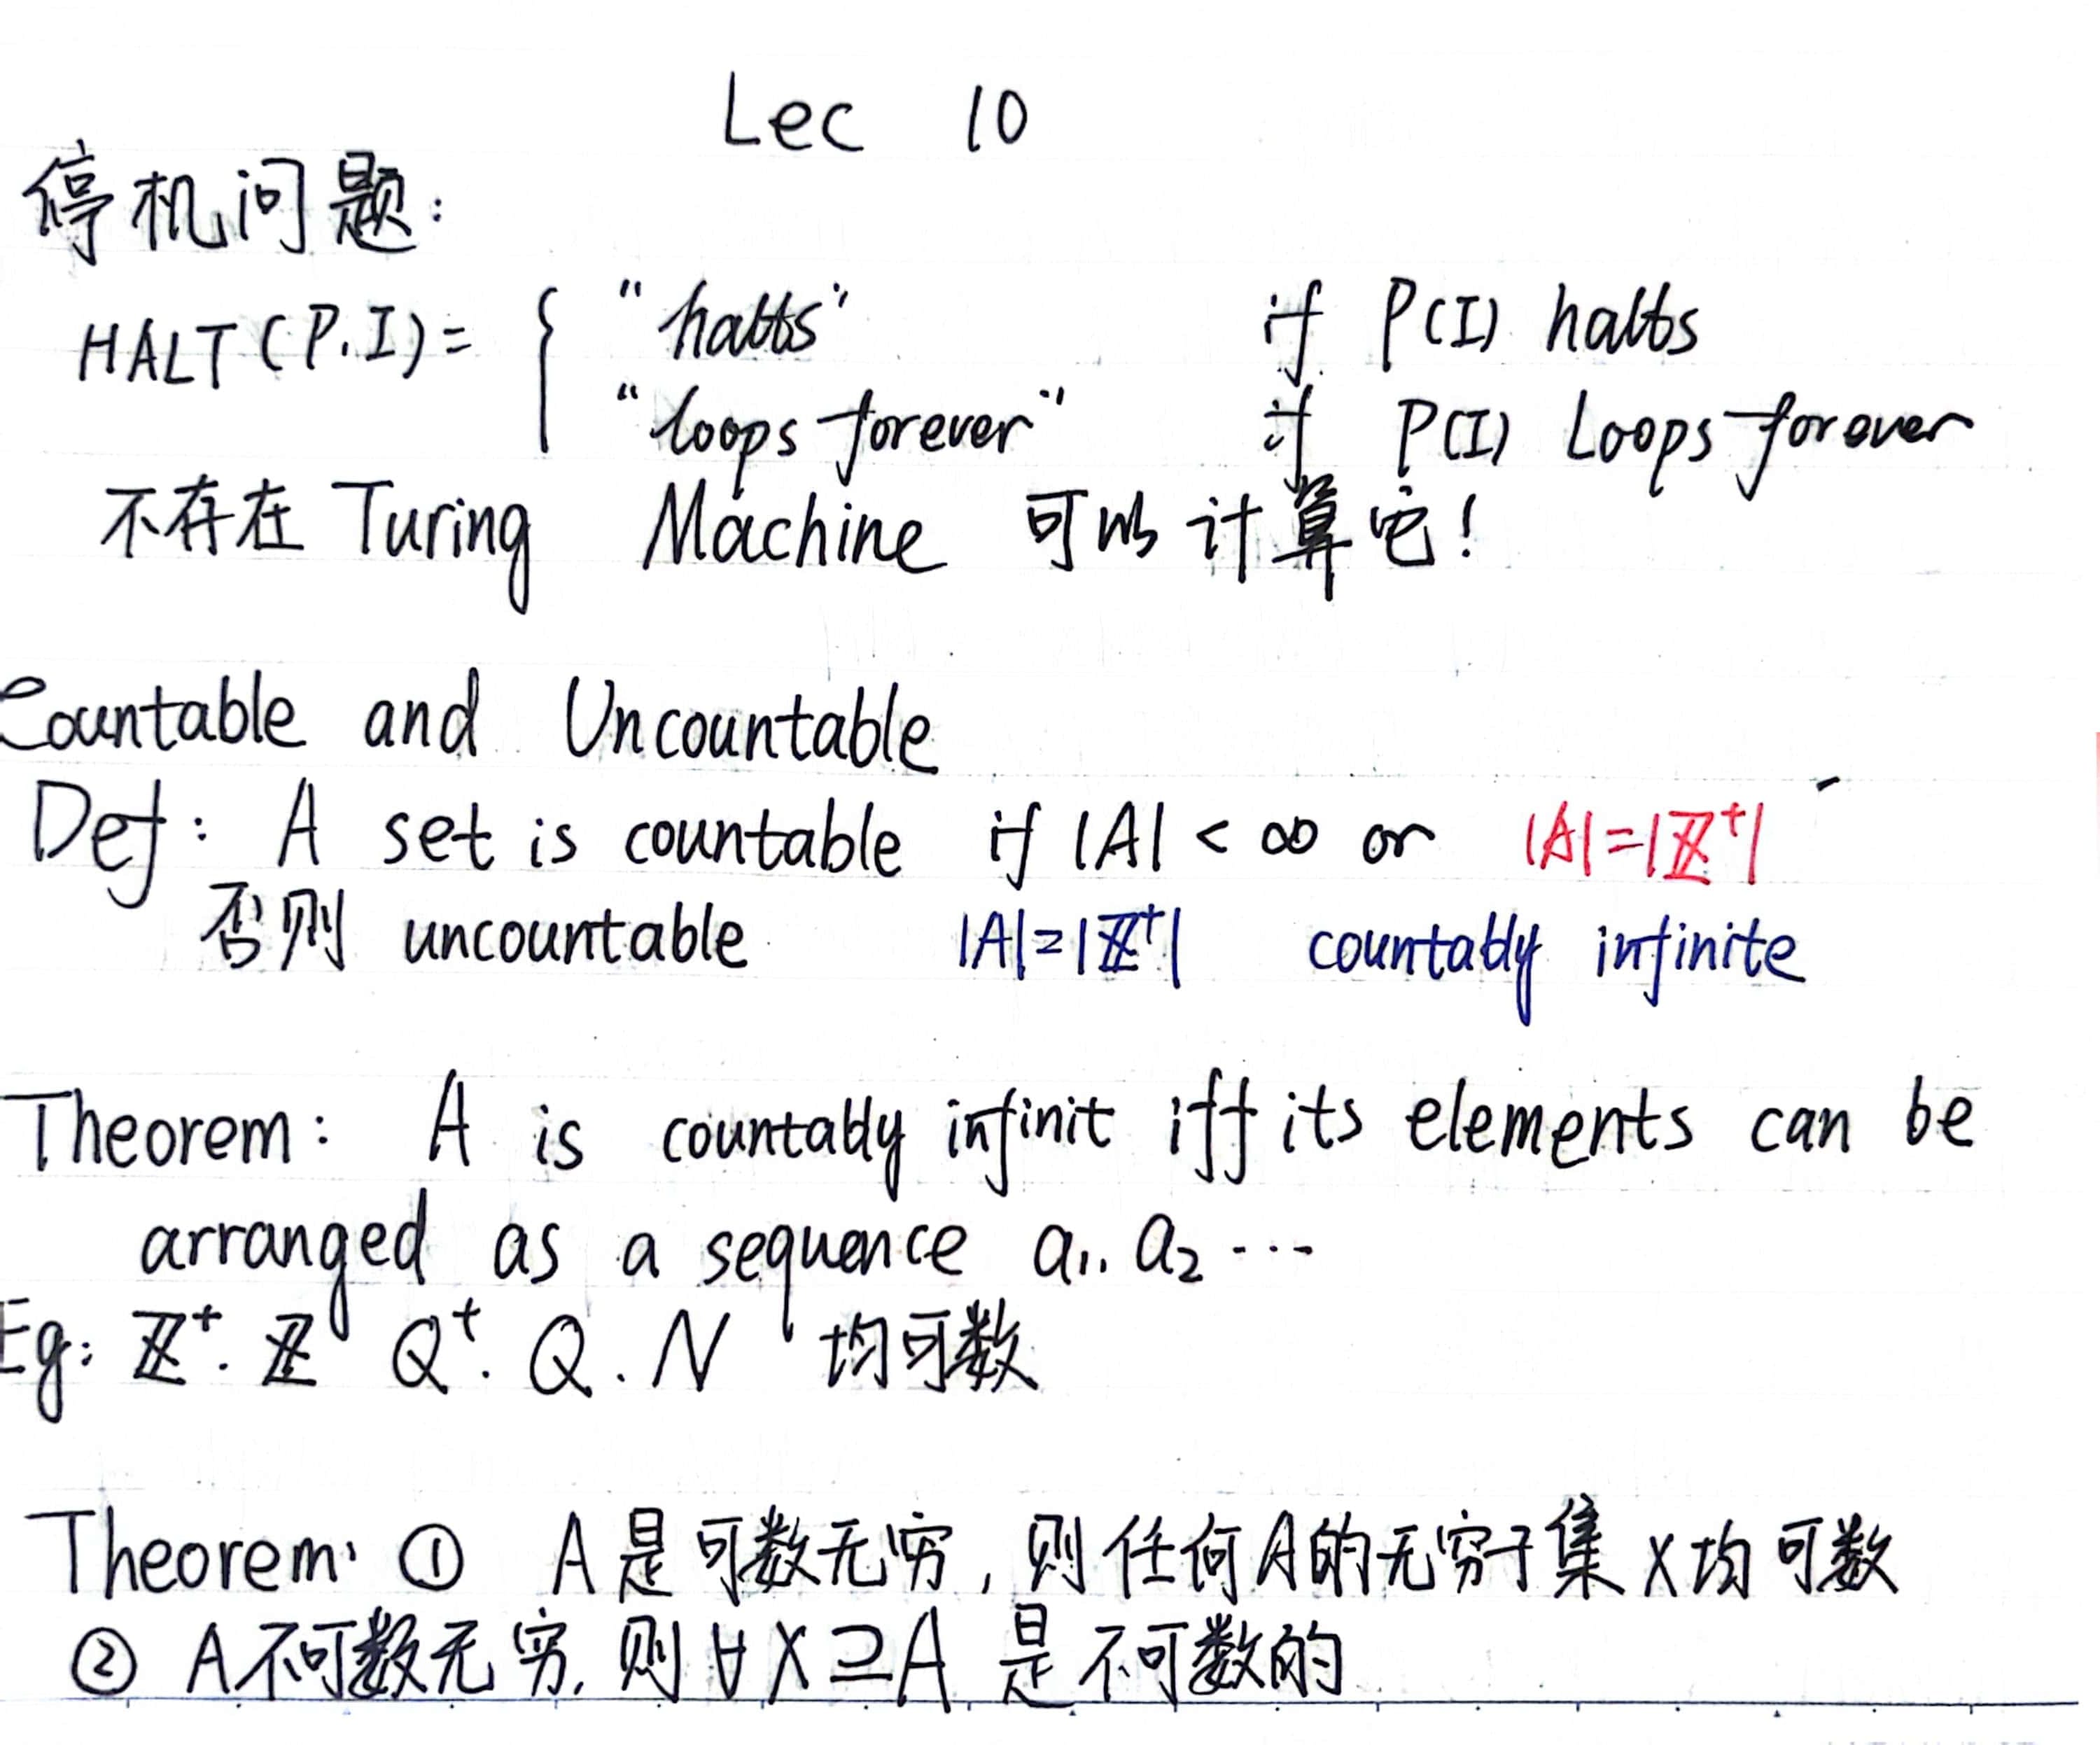 Lec 10
停机问题:
HALT(P,I)= { "halts" if P(I) halts
"loops forever" if P(I) Loops forever
不存在 Turing Machine 可以计算它!
Countable and Uncountable
Def: A set is countable if |A| < ∞ or |A|=|ℤ⁺|
否则 uncountable |A|=|ℤ⁺| countably infinite
Theorem: A is countably infinit iff its elements can be
arranged as a sequence a₁, a₂ ···
Eg: ℤ⁺. ℤ Q⁺. Q. N 均可数
Theorem: ① A是可数无穷, 则任何A的无穷子集X均可数
② A不可数无穷, 则∀X⊇A 是不可数的